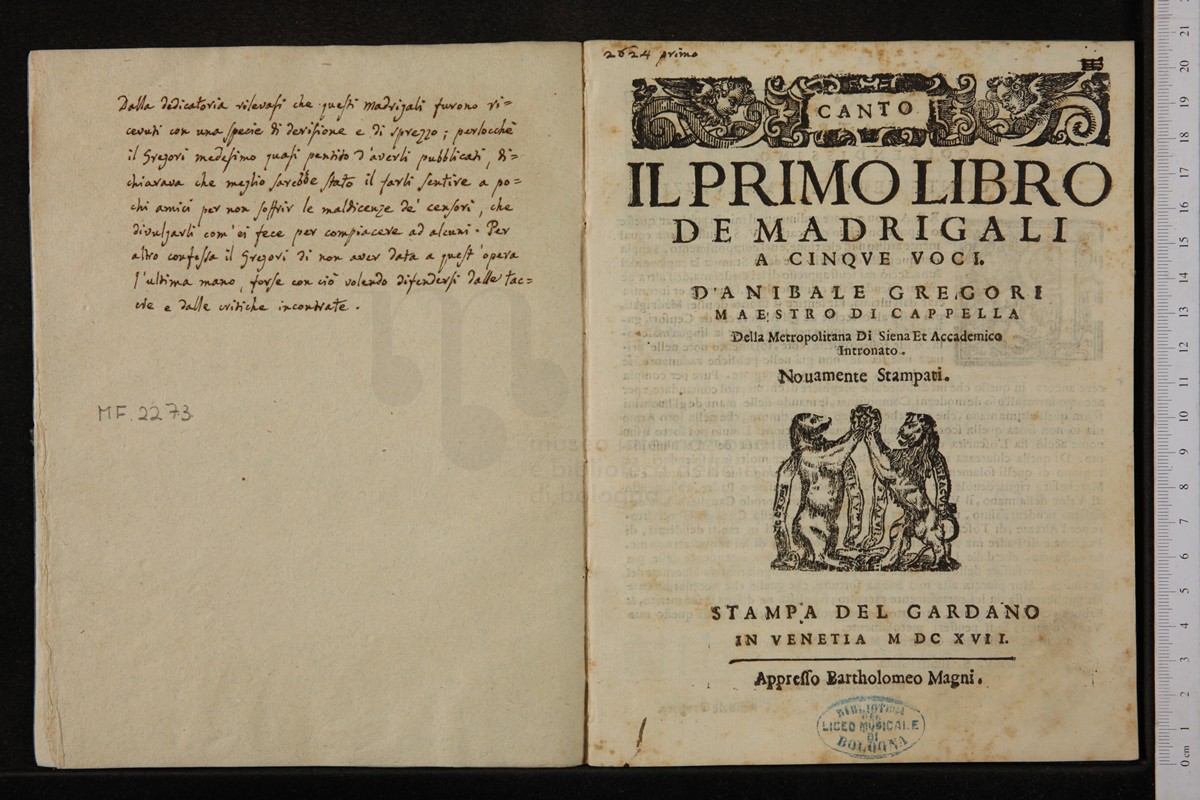 Dalla dedicatoria rilevasi che questi madrigali furono ri=
cevuti con una specie di derisione e di sprezzo; perlocchè
il Gregori medesimo quasi pentito d'averli pubblicati, di=
chiarava che meglio sarebbe stato il farli sentire a po=
chi amici per non soffrir le maldicenze de' censori, che
divulgarli com' ei fece per compiacere ad alcuni. Per
altro confessa il Gregori di non aver data a quest' opera
l'ultima mano, forse con ciò volendo difendersi dalle tac=
cie e dalle critiche incontrate.
MF. 2273
2624 primo
CANTO
IL PRIMO LIBRO
DE MADRIGALI
A CINQVE VOCI.
D'ANIBALE GREGORI
MAESTRO DI CAPPELLA
Della Metropolitana Di Siena Et Accademico
Intronato.
Nouamente Stampati.
STAMPA DEL GARDANO
IN VENETIA M DC XVII.
Appresso Bartholomeo Magni.
BIBLIOTECA
DEL
LICEO MUSICALE
DI
BOLOGNA